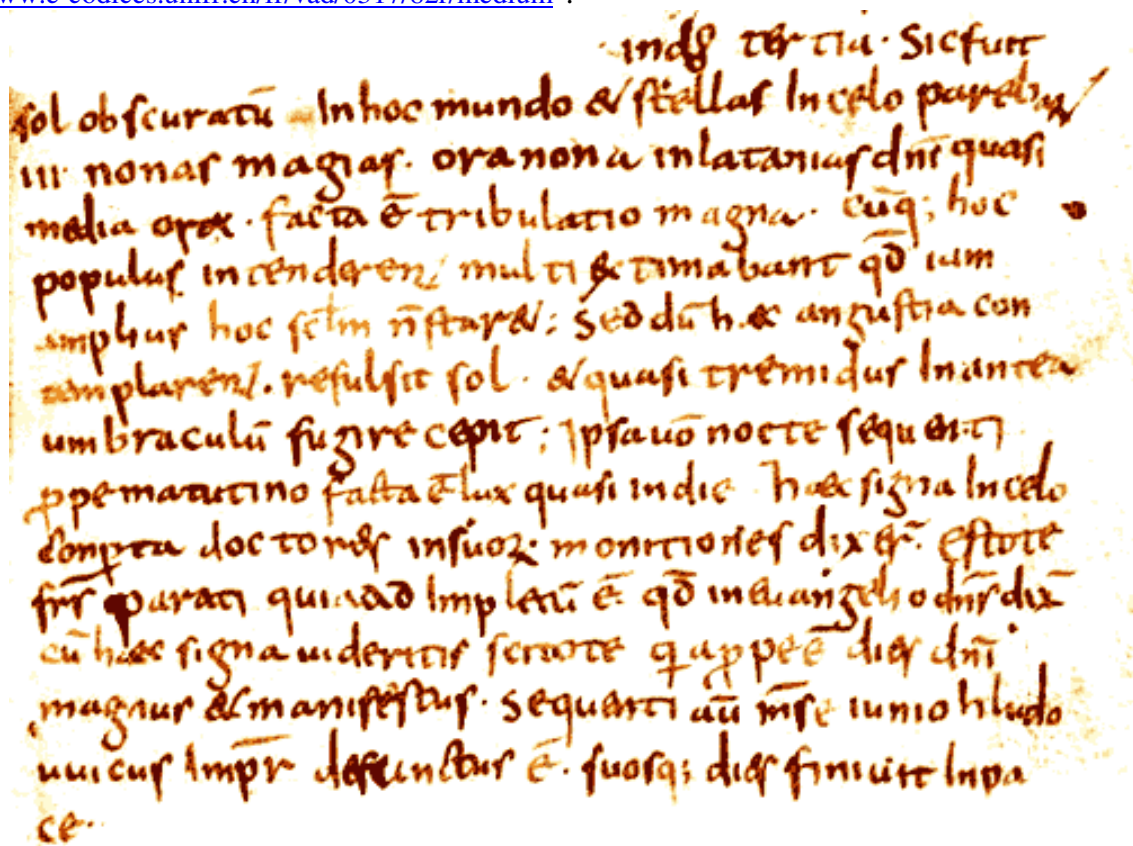 www.e-codices.unifr.ch/fr/vad/0317/82r/medium .
indҫ tertia · Sic fuit
sol obscuratū In hoc mundo & stellas In celo pareba&
III nonas magias · ora nona in latanias dn̄i quasi
media ora · facta ē tribulatio magna · cūq; hoc
populus intenderen& multi extimabant qđ iam
amplius hoc sclm n̄ star&; Sed dū hec angustia con
templaren& · refulsit sol · & quasi tremidus In antea
umbraculū fugire cepit; Ipsa uō nocte sequenti
ꝓpe matutino facta ē lux quasi in die haec signa In celo
conꝑta doctores in suoꝝ · monitiones dixer̄ · Estote
fr̄s parati quia ad Impletū ē qđ in euangelio dn̄s dix̄
cū haec signa uideritis scitote q̄ a ꝓpe ē dies dn̄i
magnus & manifestus · Sequenti aū m̄se iunio hludo
uuicus Imp̄r defunctus ē · suosq; dies finiuit In pa
ce ·